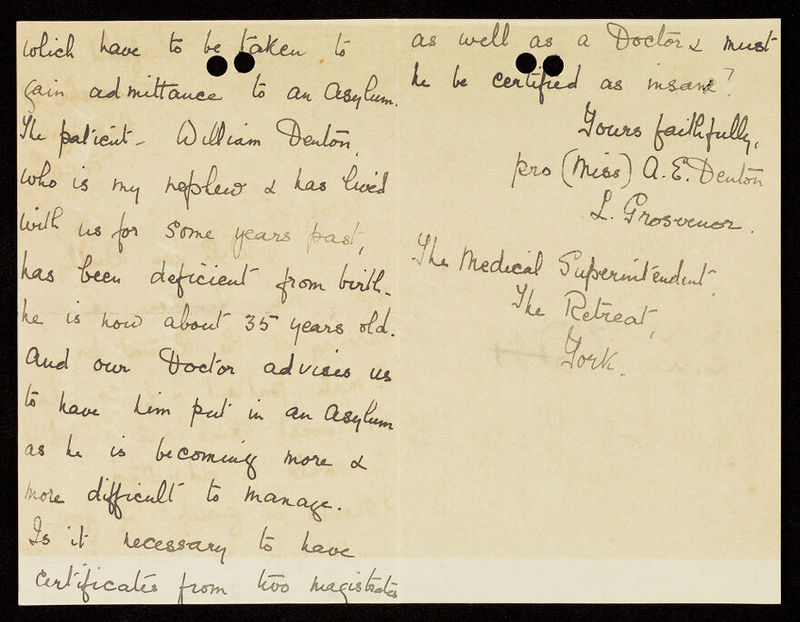 which have to be taken to
gain admittance to an Asylum.
The patient - William Denton,
who is my nephew & has lived
with us for some years past,
has been deficient from birth -
he is now about 35 years old.
And our Doctor advises us
to have him put in an Asylum
as he is becoming more &
more difficult to manage.
Is it necessary to have
certificates from two magistrates
as well as a Doctor & must
he be certified as insane?
Yours faithfully,
pro (Miss) A. E. Denton
L. Grosvenor.
The Medical Superintendent,
The Retreat,
York.